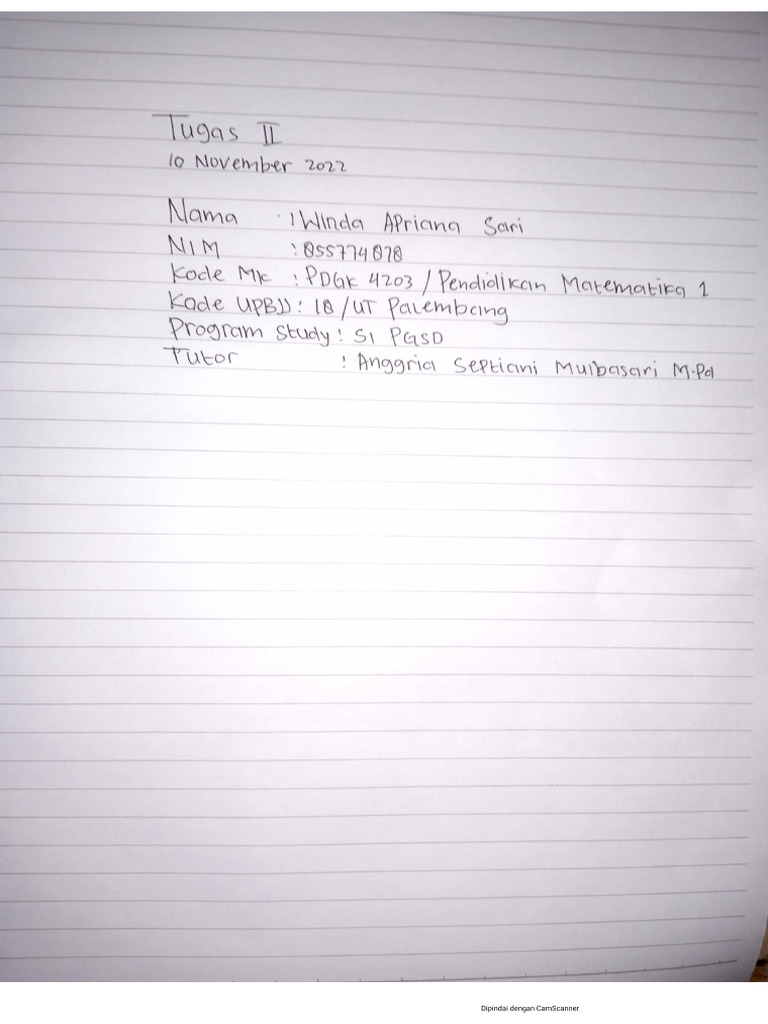 Tugas II
10 November 2022
Nama : Winda Apriana Sari
NIM : 855774878
Kode Mk : PDGK 4203 / Pendidikan Matematika 1
Kode UPBJJ : 18 / UT Palembang
Program Study : S1 PGSD
Tutor : Anggria Septiani Mulbasari M.Pd
Dipindai dengan CamScanner